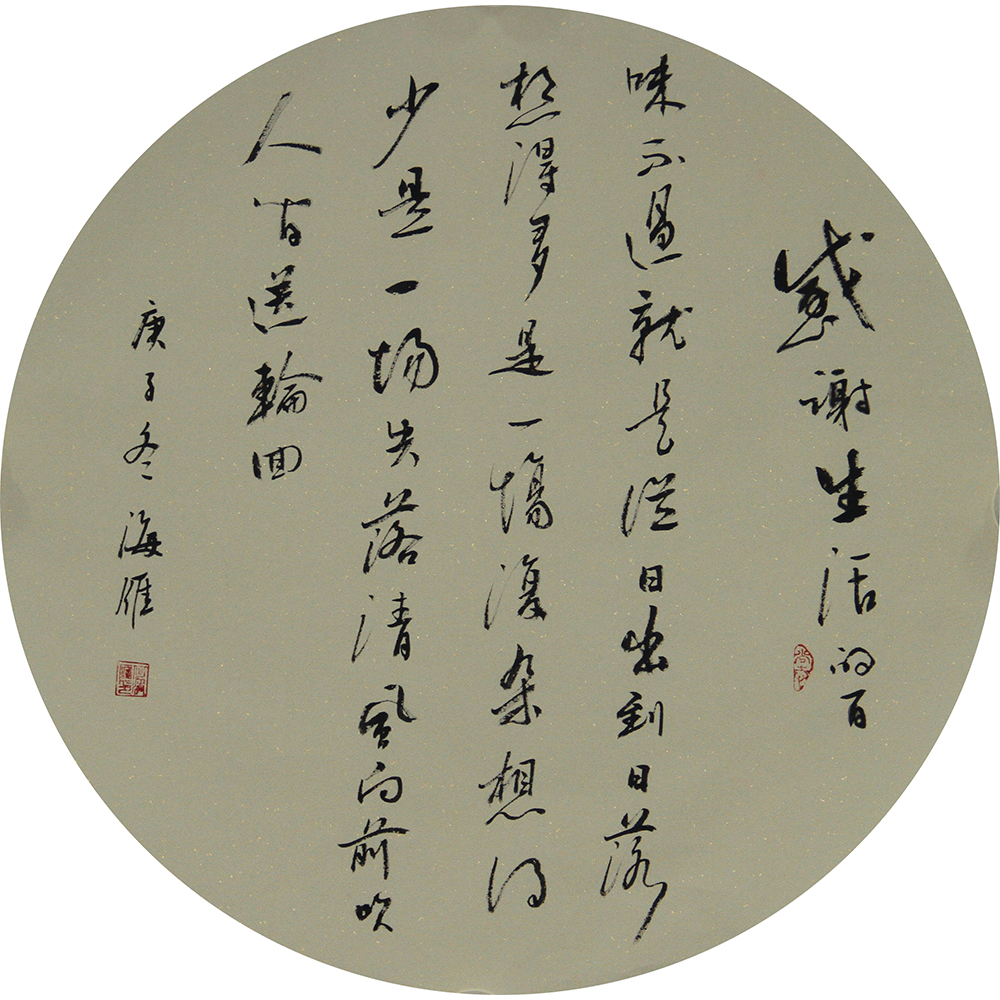 感謝生活的百
味不過就是從日出到日落
想得多是一場復杂想得
少是一场失落清風向前吹
人間送輪回
庚子冬 海雁